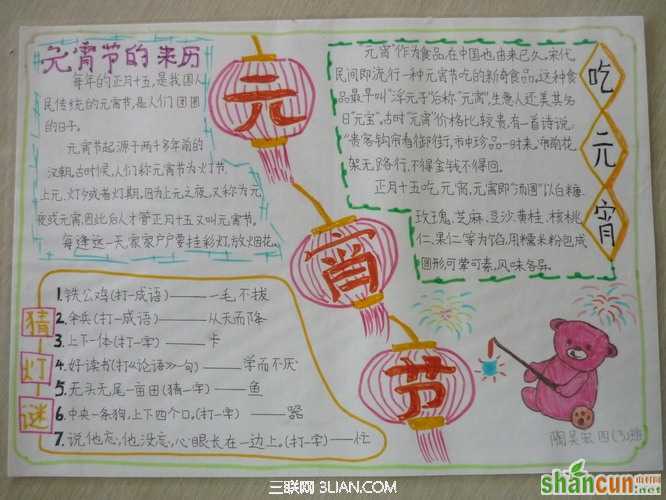 元宵节的来历
每年的正月十五,是我国人
民传统的元宵节,是人们团圆
的日子。
元宵节起源于两千多年前的
汉朝,古时候,人们称元宵节为灯节,
上元、灯夕或者灯期,因为上元之夜,又称为元
夜或元宵,因此后人才管正月十五又叫元宵节。
每逢这一天,家家户户要挂彩灯,放烟花。
元
宵
节
元宵"作为食品,在中国也由来已久。宋代,
民间即流行一种元宵节吃的新奇食品。这种食
品最早叫"浮元子"后称"元宵",生意人还美其名
曰"元宝"。古时"元宵"价格比较贵,有一首诗说:
"贵客钩帘看御街,市中珍品一时来,帘前花
架无路行,不得金钱不得回。
正月十五吃元宵,元宵即"汤圆"以白糖、
玫瑰、芝麻、豆沙、黄桂、核桃
仁、果仁等为馅,用糯米粉包成
圆形可荤可素,风味各异。
吃
元
宵
猜
灯
谜
1.铁公鸡(打一成语)——一毛不拔
2.伞兵(打一成语)——从天而降
3.上下一体(打一字)——卡
4.好读书(打《论语》一句)——学而不厌
5.无头无尾一亩田(猜一字)——鱼
6.中央一条狗,上下四个口。(打一字)——器
7.说他忘,他没忘,心眼长在一边上。(打一字)——忙
四(3)班
三联网 3LIAN.COM
shancun